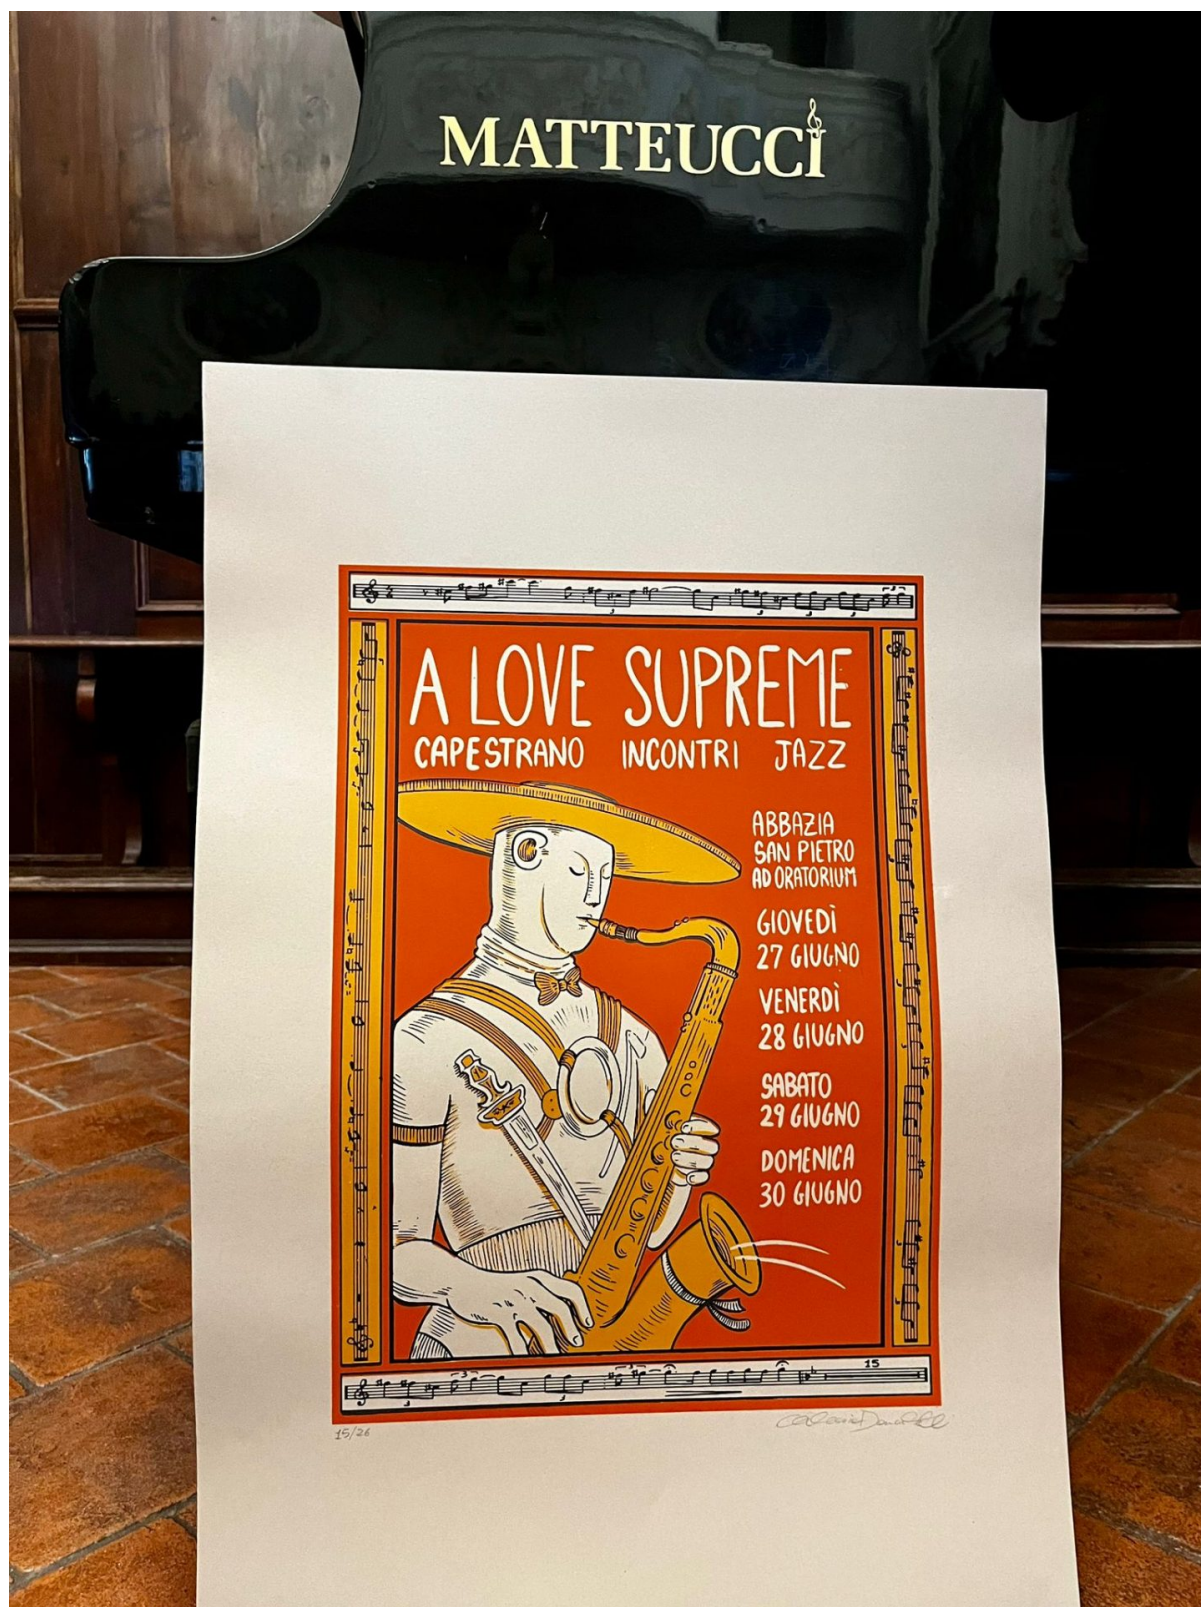 MATTEUCCI
A LOVE SUPREME
CAPESTRANO INCONTRI JAZZ
ABBAZIA
SAN PIETRO
AD ORATORIUM
GIOVEDÌ
27 GIUGNO
VENERDÌ
28 GIUGNO
SABATO
29 GIUGNO
DOMENICA
30 GIUGNO
15
15/26